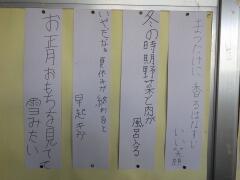 まつたけに 香るはなすじ
いい笑顔
冬の時期野菜と肉が
風呂入る
いやだな。夏休みが終わると
早起き
お正月おもちを見てて
雪みたい